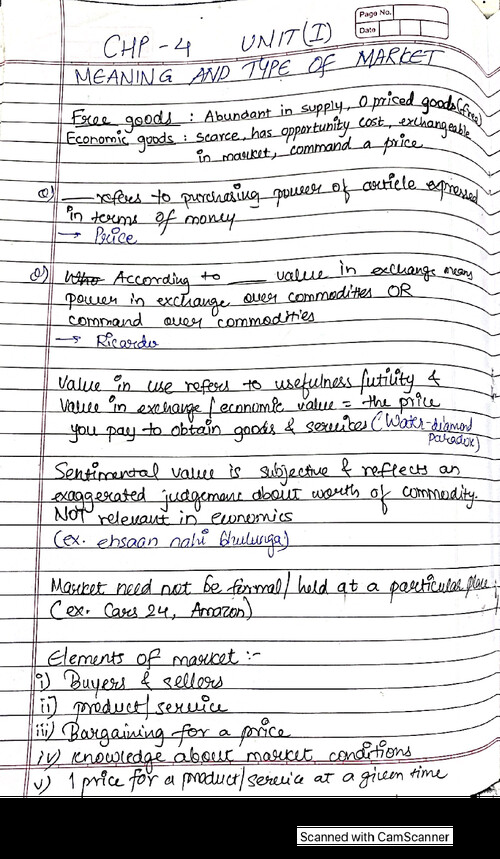 Page No.
Date
CHP - 4 UNIT (I)
MEANING AND TYPE OF MARKET
Free goods : Abundant in supply, 0 priced goods (free)
Economic goods : scarce, has opportunity cost, exchangeable
in market, command a price
Q) ___ refers to purchasing power of article expressed
in terms of money
→ Price
Q) Who According to ___ value in exchange means
power in exchange over commodities OR
command over commodities
→ Ricardo
Value in use refers to usefulness/utility &
value in exchange/economic value = the price
you pay to obtain goods & services (Water-diamond
paradox)
Sentimental value is subjective & reflects an
exaggerated judgement about worth of commodity.
NOT relevant in economics
(ex. ehsaan nahi bhulunga)
Market need not be formal/held at a particular place.
(ex. Cars 24, Amazon)
Elements of market :-
i) Buyers & sellers
ii) product/service
iii) Bargaining for a price
iv) knowledge about market conditions
v) 1 price for a product/service at a given time
Scanned with CamScanner